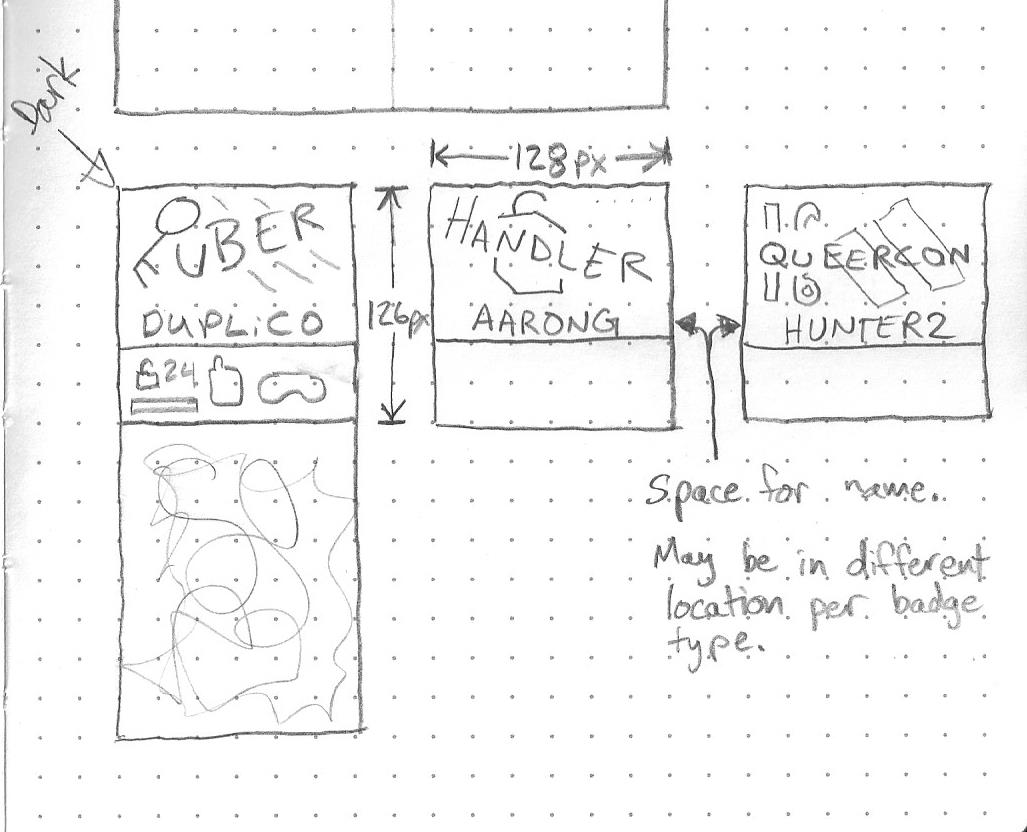 Dark
128px
UBER
DUPLICO
126px
HANDLER
AARONG
QUEERCON
HUNTER2
24
Space for name.
May be in different
location per badge
type.